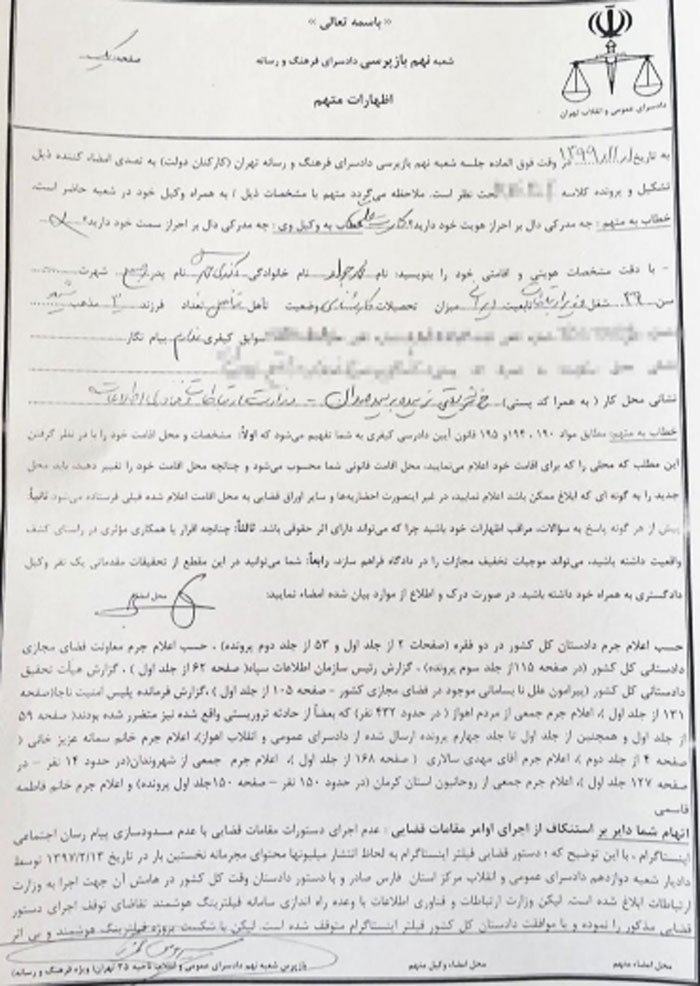 « باسمه تعالی »
شعبه نهم بازپرسی دادسرای فرهنگ و رسانه
صفحه: یک
اظهارات متهم
دادسرای عمومی و انقلاب تهران
به تاریخ ۱۳۹۹ در وقت فوق العاده جلسه شعبه نهم بازپرسی دادسرای فرهنگ و رسانه تهران (کارکنان دولت) به تصدی امضاء کننده ذیل
تشکیل و پرونده کلاسه تحت نظر است. ملاحظه می‌گردد متهم با مشخصات ذیل / به همراه وکیل خود در شعبه حاضر است.
خطاب به متهم: چه مدرکی دال بر احراز هویت خود دارید؟ کارت ملی خطاب به وکیل وی: چه مدرکی دال بر احراز سمت خود دارید؟
- با دقت مشخصات هویتی و اقامتی خود را بنویسید: نام محمدجواد نام خانوادگی نام پدر شهرت
سن ۳۹ شغل وزیر ارتباطات تابعیت ایرانی میزان تحصیلات کارشناسی وضعیت تأهل متاهل تعداد فرزند ۳ مذهب شیعه
سوابق کیفری ندارم پیام نگار
نشانی محل کار ( به همرا کد پستی) خ شریعتی نرسیده به پل سیدخندان - وزارت ارتباطات و فناوری اطلاعات
خطاب به متهم: مطابق مواد ۱۹۰، ۱۹۴ و ۱۹۵ قانون آیین دادرسی کیفری به شما تفهیم می‌شود که اولاً: مشخصات و محل اقامت خود را با در نظر گرفتن
این مطلب که محلی را که برای اقامت خود اعلام می‌نمایید، محل اقامت قانونی شما محسوب می‌شود و چنانچه محل اقامت خود را تغییر دهید، باید محل
جدید را به گونه ای که ابلاغ ممکن باشد اعلام نمایید، در غیر اینصورت احضاریه‌ها و سایر اوراق قضایی به محل اقامت اعلام شده قبلی فرستاده می‌شود ثانیاً:
پیش از هر گونه پاسخ به سؤالات، مراقب اظهارات خود باشید چرا که می‌تواند دارای اثر حقوقی باشد. ثالثاً: چنانچه اقرار یا همکاری مؤثری در راستای کشف
واقعیت داشته باشید، می‌تواند موجبات تخفیف مجازات را در دادگاه فراهم سازد. رابعاً: شما می‌توانید در این مقطع از تحقیقات مقدماتی یک نفر وکیل
دادگستری به همراه خود داشته باشید. در صورت درک و اطلاع از موارد بیان شده امضاء نمایید: محل امضاء
حسب اعلام جرم دادستان کل کشور در دو فقره (صفحات ۲ از جلد اول و ۵۳ از جلد دوم پرونده) ، حسب اعلام جرم معاونت فضای مجازی
دادستانی کل کشور (در صفحه ۱۱۵از جلد سوم پرونده)، گزارش رئیس سازمان اطلاعات سپاه( صفحه ۶۲ از جلد اول ) ، گزارش هیأت تحقیق
دادستانی کل کشور (پیرامون علل نا بسامانی موجود در فضای مجازی کشور - صفحه ۱۰۵ از جلد اول ) ،گزارش فرمانده پلیس امنیت ناجا(صفحه
۱۳۱ از جلد اول )، اعلام جرم جمعی از مردم اهواز ( در حدود ۴۳۲ نفر) که بعضاً از حادثه تروریستی واقع شده نیز متضرر شده بودند( صفحه ۵۹
از جلد اول و همچنین از جلد اول تا جلد چهارم پرونده ارسال شده از دادسرای عمومی و انقلاب اهواز)، اعلام جرم خانم سمانه عزیز خانی (
صفحه ۴ از جلد دوم )، اعلام جرم آقای مهدی سالاری ( صفحه ۱۶۸ از جلد اول )، اعلام جرم جمعی از شهروندان(در حدود ۱۴ نفر – در
صفحه ۱۲۷ جلد اول )، اعلام جرم جمعی از روحانیون استان کرمان (در حدود ۱۵۰ نفر – صفحه ۱۵۰جلد اول پرونده) و اعلام جرم خانم فاطمه
قاسمی
اتهام شما دایر بر استنکاف از اجرای اوامر مقامات قضایی : عدم اجرای دستورات مقامات قضایی با عدم مسدودسازی پیام رسان اجتماعی
اینستاگرام ، با این توضیح که ؛ دستور قضایی فیلتر اینستاگرام به لحاظ انتشار میلیونها محتوای مجرمانه نخستین بار در تاریخ ۱۳۹۷/۲/۱۳ توسط
دادیار شعبه دوازدهم دادسرای عمومی و انقلاب مرکز استان فارس صادر و با دستور دادستان وقت کل کشور در هامش آن جهت اجرا به وزارت
ارتباطات ابلاغ شده است. لیکن وزارت ارتباطات و فناوری اطلاعات با وعده راه اندازی سامانه فیلترینگ هوشمند تقاضای توقف اجرای دستور
قضایی مذکور را نموده و با موافقت دادستان کل کشور فیلتر اینستاگرام متوقف شده است. لیکن با شکست پروژه فیلترینگ هوشمند و بی اثر
محل امضاء متهم
محل امضاء وکیل متهم
بازپرس شعبه نهم دادسرای عمومی و انقلاب ناحیه ۳۵ تهران( ویژه فرهنگ و رسانه)